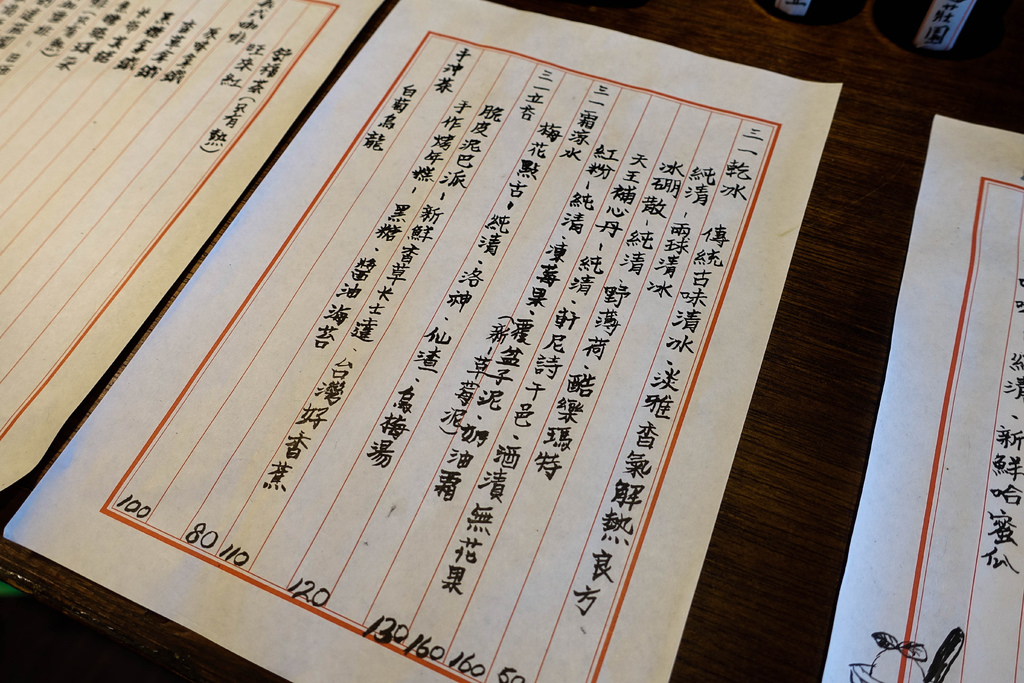 三一乾冰 傳統古味漬冰、淡雅香氣解熱良方
純清-兩球清冰 50
冰硼散 純漬、野薄荷、酷樂瑪特 160
天王補心丹-純漬、軒尼詩干邑、酒漬無花果 160
紅粉-純清、凍莓果、覆盆子泥、奶油霜 130
(新-草莓泥)
三一霜涼水
梅花點舌-純漬、洛神、仙渣、烏梅湯 120
三一立吞
脆皮泥巴派-新鮮香草卡士達、台灣好香蕉 110
手作烤年糕-黑糖、醬油海苔 80
手沖茶
白菊烏龍 100
(只有熱)
旺來紅
純漬、新鮮哈蜜瓜
莊園